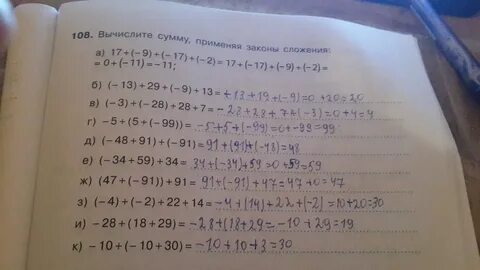 108. Вычислите сумму, применяя законы сложения:
а) 17+(−9)+(−17)+(−2)=17+(−17)+(−9)+(−2)=
=0+(−11)=−11;
б) (−13)+29+(−9)+13=+13+19+(-9)=0+20=20
в) (−3)+(−28)+28+7=-28+28+7+(-3)=0+4=4
г) −5+(5+(−99))=-5+5+(-99)=0+-99=99
д) (−48+91)+(−91)=91+(91)+(-48)=48
е) (−34+59)+34=34+(-34)+59=0+59=59
ж) (47+(−91))+91=91+(-91)+47=47+0=47
з) (−4)+(−2)+22+14=-4+(14)+22+(-2)=10+20=30
и) −28+(18+29)=-28+(18+29=-10+29=19
к) −10+(−10+30)=-10+10+3=30